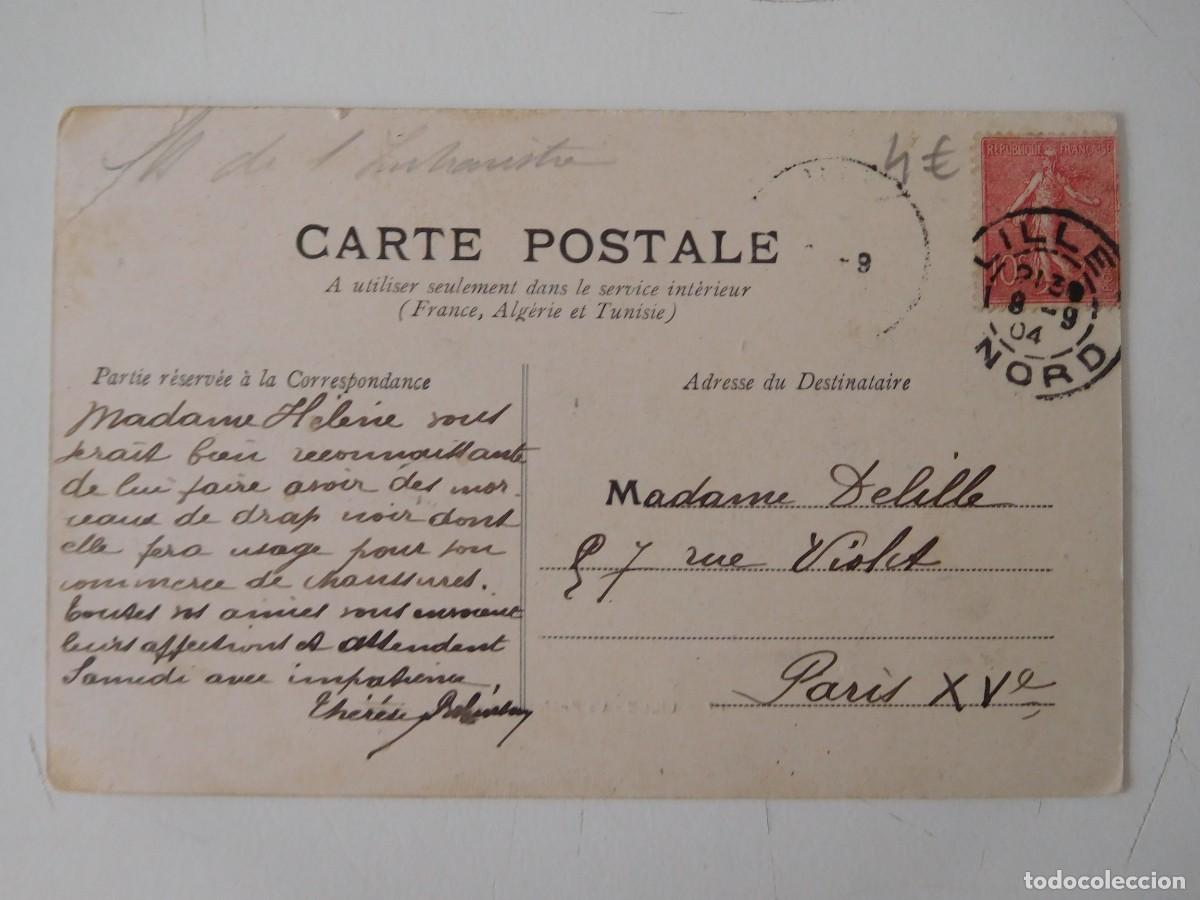 de l'
4€
RÉPUBLIQUE FRANÇAISE
10c
LILLE
8 -9
04
NORD
-9
CARTE POSTALE
A utiliser seulement dans le service intérieur
(France, Algérie et Tunisie)
Partie réservée à la Correspondance
Madame Hélène vous
serait bien reconnaissante
de lui faire avoir des mor-
ceaux de drap noir dont
elle fera usage pour son
commerce de chaussures.
Toutes vos amies vous envoient
leurs affections et attendent
Samedi avec impatience.
Thérèse
Adresse du Destinataire
Madame Delille
57 rue Violet
Paris XVe
todocoleccion